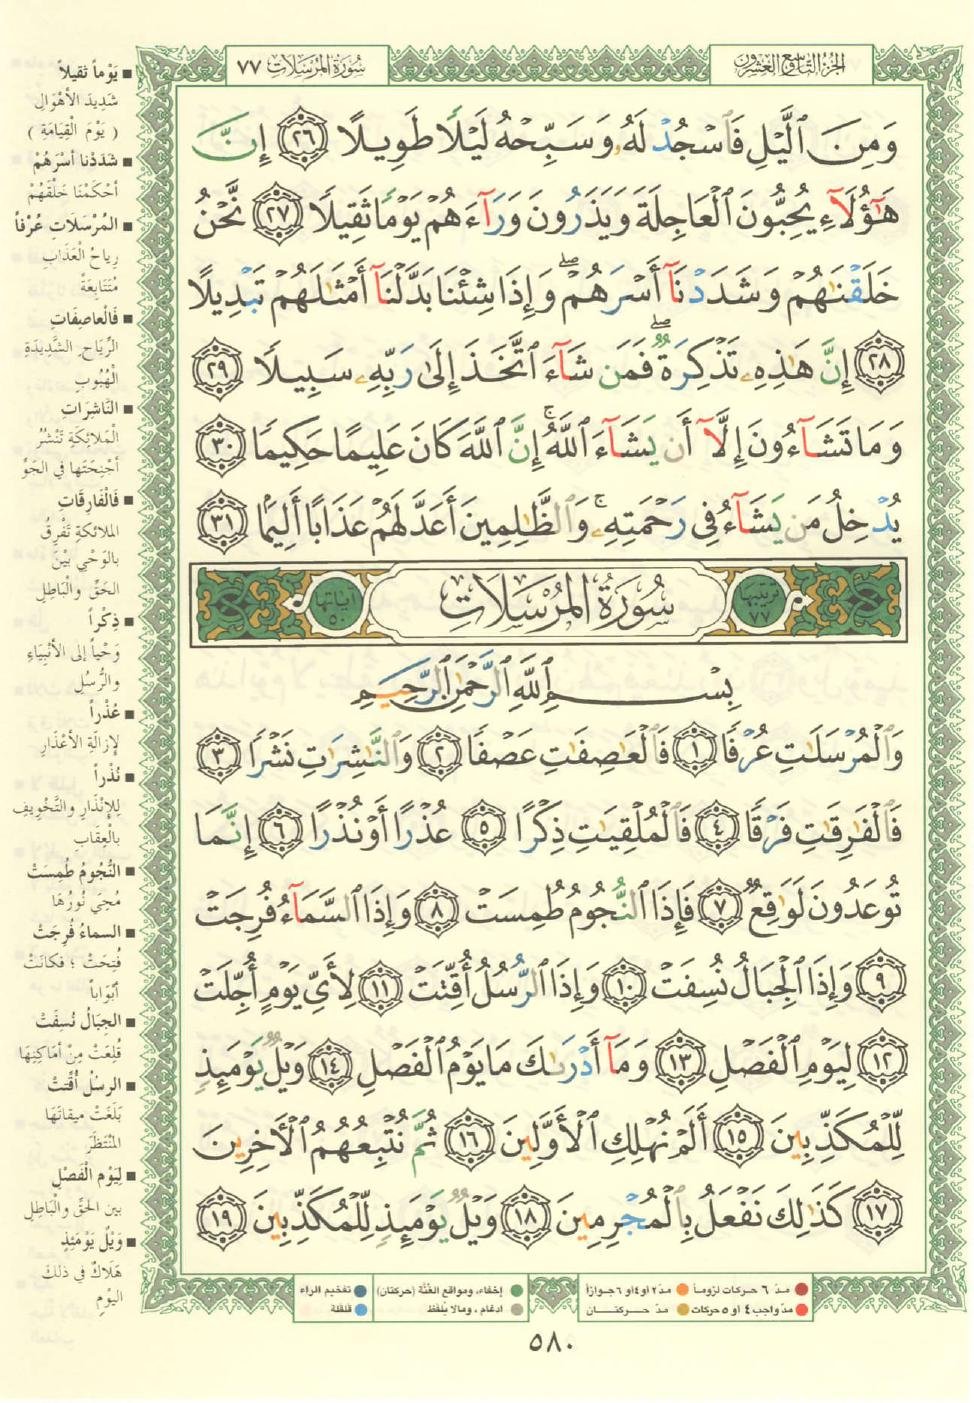 الجزء التاسع والعشرون
سورة المرسلات ٧٧
وَمِنَ ٱلَّيۡلِ فَٱسۡجُدۡ لَهُۥ وَسَبِّحۡهُ لَيۡلٗا طَوِيلًا ٢٦ إِنَّ
هَٰٓؤُلَآءِ يُحِبُّونَ ٱلۡعَاجِلَةَ وَيَذَرُونَ وَرَآءَهُمۡ يَوۡمٗا ثَقِيلٗا ٢٧ نَّحۡنُ
خَلَقۡنَٰهُمۡ وَشَدَدۡنَآ أَسۡرَهُمۡۖ وَإِذَا شِئۡنَا بَدَّلۡنَآ أَمۡثَٰلَهُمۡ تَبۡدِيلًا
٢٨ إِنَّ هَٰذِهِۦ تَذۡكِرَةٞۖ فَمَن شَآءَ ٱتَّخَذَ إِلَىٰ رَبِّهِۦ سَبِيلٗا ٢٩
وَمَا تَشَآءُونَ إِلَّآ أَن يَشَآءَ ٱللَّهُۚ إِنَّ ٱللَّهَ كَانَ عَلِيمًا حَكِيمٗا ٣٠
يُدۡخِلُ مَن يَشَآءُ فِي رَحۡمَتِهِۦۚ وَٱلظَّٰلِمِينَ أَعَدَّ لَهُمۡ عَذَابًا أَلِيمَۢا ٣١
ترتيبها ٧٧ سُورَةُ المُرْسَلَاتِ آياتها ٥٠
بِسۡمِ ٱللَّهِ ٱلرَّحۡمَٰنِ ٱلرَّحِيمِ
وَٱلۡمُرۡسَلَٰتِ عُرۡفٗا ١ فَٱلۡعَٰصِفَٰتِ عَصۡفٗا ٢ وَٱلنَّٰشِرَٰتِ نَشۡرٗا ٣
فَٱلۡفَٰرِقَٰتِ فَرۡقٗا ٤ فَٱلۡمُلۡقِيَٰتِ ذِكۡرًا ٥ عُذۡرًا أَوۡ نُذۡرًا ٦ إِنَّمَا
تُوعَدُونَ لَوَٰقِعٞ ٧ فَإِذَا ٱلنُّجُومُ طُمِسَتۡ ٨ وَإِذَا ٱلسَّمَآءُ فُرِجَتۡ
٩ وَإِذَا ٱلۡجِبَالُ نُسِفَتۡ ١٠ وَإِذَا ٱلرُّسُلُ أُقِّتَتۡ ١١ لِأَيِّ يَوۡمٍ أُجِّلَتۡ
١٢ لِيَوۡمِ ٱلۡفَصۡلِ ١٣ وَمَآ أَدۡرَىٰكَ مَا يَوۡمُ ٱلۡفَصۡلِ ١٤ وَيۡلٞ يَوۡمَئِذٖ
لِّلۡمُكَذِّبِينَ ١٥ أَلَمۡ نُهۡلِكِ ٱلۡأَوَّلِينَ ١٦ ثُمَّ نُتۡبِعُهُمُ ٱلۡأٓخِرِينَ
١٧ كَذَٰلِكَ نَفۡعَلُ بِٱلۡمُجۡرِمِينَ ١٨ وَيۡلٞ يَوۡمَئِذٖ لِّلۡمُكَذِّبِينَ ١٩
■ يَوْماً ثقيلاً
شَدِيدَ الأهْوَالِ
( يَوْمَ الْقِيَامَةِ )
■ شَدَدْنا أسْرَهُمْ
أحْكَمْنَا خَلْقَهُمْ
■ المُرْسَلَاتِ عُرْفاً
رِياحُ الْعَذَابِ
مُتَتَابِعَةً
■ فَالْعاصِفَاتِ
الرِّيَاحِ الشَّدِيدَةِ
الْهُبُوبِ
■ النَّاشِرَاتِ
الْمَلَائِكَةِ تَنْشُرُ
أجْنِحَتَها في الجَوِّ
■ فَالْفَارِقَاتِ
الملائكةِ تَفْرِقُ
بالوَحْيِ بَيْنَ
الحَقِّ والْبَاطِلِ
■ ذِكْراً
وَحْياً إلى الأنْبِيَاءِ
والرُّسُلِ
■ عُذْراً
لإزَالَةِ الأعْذَارِ
■ نُذْراً
لِلإنْذَارِ والتَّخْوِيفِ
بالْعِقَابِ
■ النُّجُومُ طُمِسَتْ
مُحِيَ نُورُهَا
■ السماءُ فُرِجَتْ
فُتِحَتْ ؛ فكانَتْ
أبْوَاباً
■ الجِبَالُ نُسِفَتْ
قُلِعَتْ مِنْ أمَاكِنِهَا
■ الرسُلُ أُقِّتَتْ
بَلَغَتْ ميقاتَهَا
المُنْتَظَرَ
■ لِيَوْمِ الْفَصْلِ
بين الحَقِّ والْبَاطِلِ
■ وَيْلٌ يَوْمَئِذٍ
هَلَاكٌ في ذلكَ
اليَوْمِ
مدّ ٦ حركات لزوماً مدّ ٢ أو ٤ أو ٦ جوازاً
مدّ واجب ٤ أو ٥ حركات مدّ حركتــان
إخفاء، ومواقع الغُنَّة (حركتان)
إدغام، وما لا يُلفَظ
تفخيم الراء
قلقلة
٥٨٠